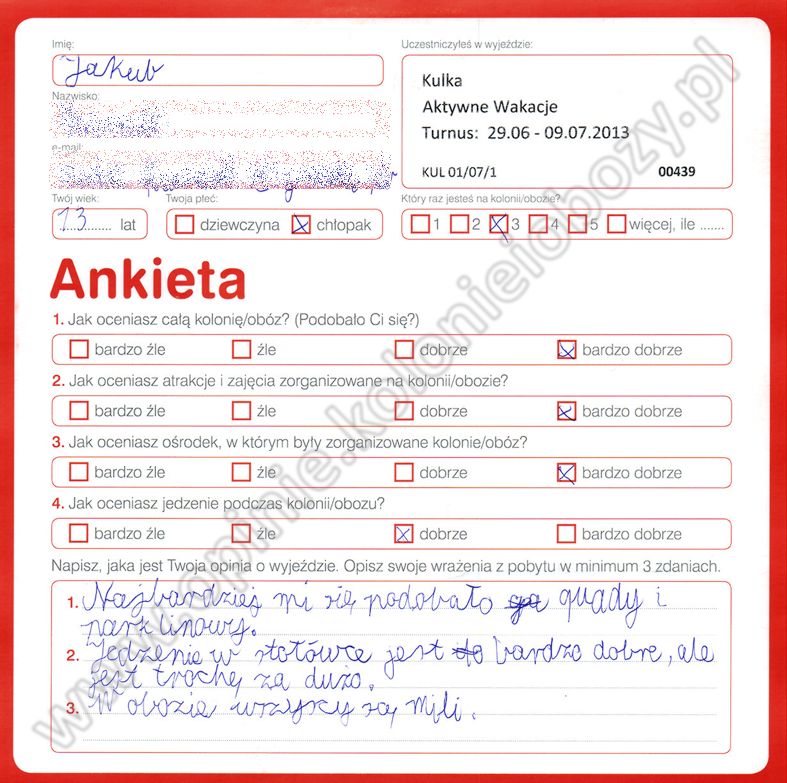 Imię:
Jakub
Uczestniczyłeś w wyjeździe:
Kulka
Aktywne Wakacje
Turnus: 29.06 - 09.07.2013
KUL 01/07/1 00439
Nazwisko:
e-mail:
Twój wiek:
13 lat
Twoja płeć:
dziewczyna chłopak
Który raz jesteś na kolonii/obozie?
1 2 3 4 5 więcej, ile .......
Ankieta
1. Jak oceniasz całą kolonię/obóz? (Podobało Ci się?)
bardzo źle źle dobrze bardzo dobrze
2. Jak oceniasz atrakcje i zajęcia zorganizowane na kolonii/obozie?
bardzo źle źle dobrze bardzo dobrze
3. Jak oceniasz ośrodek, w którym były zorganizowane kolonie/obóz?
bardzo źle źle dobrze bardzo dobrze
4. Jak oceniasz jedzenie podczas kolonii/obozu?
bardzo źle źle dobrze bardzo dobrze
Napisz, jaka jest Twoja opinia o wyjeździe. Opisz swoje wrażenia z pobytu w minimum 3 zdaniach.
1. Najbardziej mi się podobało quady i
park linowy.
2. Jedzenie w stołówce jest bardzo dobre, ale
jest trochę za dużo.
3. W obozie wszyscy są mili.
www.opinie.kolonieiobozy.pl